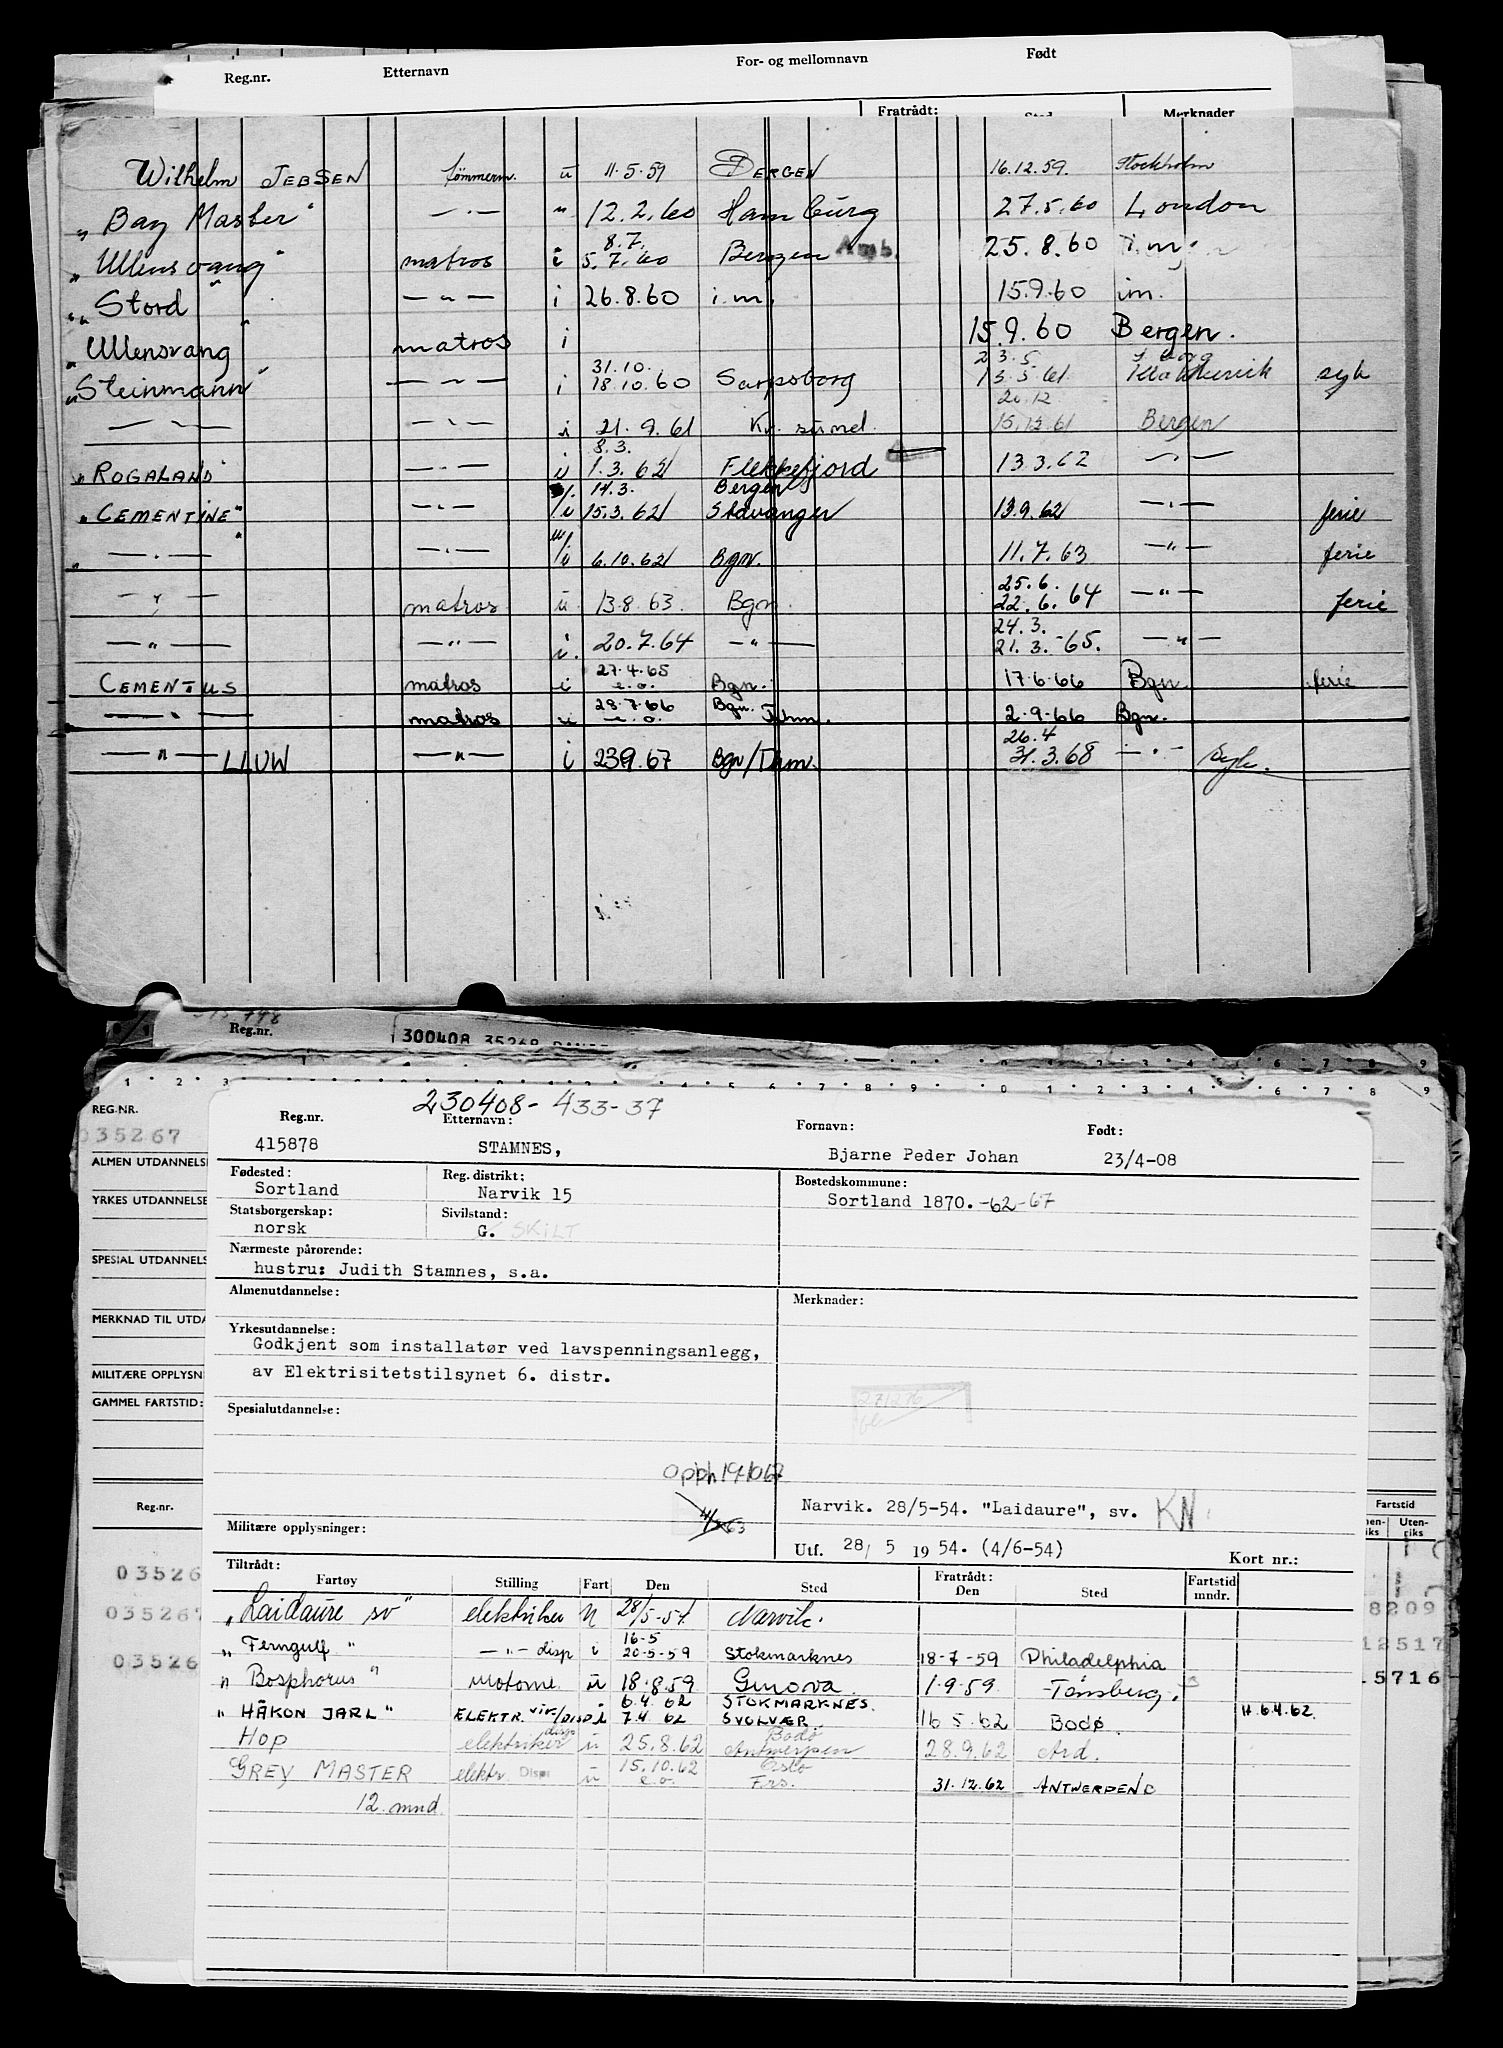 Reg.nr. Etternavn For- og mellomnavn Født
Fratrådt: Merknader
Wilhelm JEBSEN tømmerm. u 11.5.59 BERGEN 16.12.59. Stockholm
"Bay Master" —"— " 12.2.60 Hamburg 27.5.60 London
8.7.
"Ullensvang" matros i 5.7.60 Bergen 25.8.60 i.m.
"Stord" —"— i 26.8.60 i.m. 15.9.60 im.
"Ullensvang" matros i 15.9.60 Bergen.
31.10. 23.5
"Steinmann" —"— i 18.10.60 Sarpsborg 13.5.61 syk
20.12
—"— —"— i 21.9.61 Kr. sund. 15.12.61 Bergen
8.3.
"ROGALAND" —"— i 1.3.62 Flekkefjord 13.3.62 —"—
14.3. Bergen
"CEMENTINE" —"— u/i 15.3.62 Stavanger 13.9.62 —"— ferie
—"— —"— u/i 6.10.62 Bgn. 11.7.63 —"— ferie
25.6.
—"— matros u 13.8.63. Bgn. 22.6.64 —"— ferie
24.3.
—"— —"— i. 20.7.64 —"— 21.3.-65. —"—
27.4.65
CEMENTUS matros i e.o. Bgn. 17.6.66 Bgn. ferie
28.7.66 Bgn.
—"— matros u e.o. Thm. 2.9.66 Bgn.
26.4
—"— LLUW —"— i 239.67 Bgn/Thm. 31.3.68 —"— Syk.
Reg.nr. 300408 35268
1 2 3 4 5 6 7 8 9 0 1 2 3 4 5 6 7 8 9
REG.NR.
035267
ALMEN UTDANNELSE
YRKES UTDANNELSE
SPESIAL UTDANNELSE
MERKNAD TIL UTDA
MILITÆRE OPPLYSN
GAMMEL FARTSTID:
Reg.nr.
03526
035267
03526
230408-433-37
Reg.nr. Etternavn: Fornavn: Født:
415878 STAMNES, Bjarne Peder Johan 23/4-08
Fødested: Reg. distrikt: Bostedskommune:
Sortland Narvik 15 Sortland 1870.-62-67
Statsborgerskap: Sivilstand:
norsk G. SKILT
Nærmeste pårørende:
hustru: Judith Stamnes, s.a.
Almenutdannelse: Merknader:
Yrkesutdannelse:
Godkjent som installatør ved lavspenningsanlegg,
av Elektrisitetstilsynet 6. distr.
271276
Spesialutdannelse:
Opph 19-10 67
Narvik. 28/5-54. "Laidaure", sv. KN.
Militære opplysninger:
Utf. 28/ 5 19 54. (4/6-54)
Kort nr.:
Tiltrådt: Fratrådt: Fartstid
Fartøy Stilling Fart Den Sted Den Sted mndr.
"Laidaure sv" elektriker N 28/5-54 Narvik.
16-5
"Ferngulf" —"— disp i 20-5-59 Stokmarknes 18-7-59 Philadelphia
"Bosphorus" Motorm. u 18.8.59 Genova 1.9.59 Tønsberg.
6.4.62 STOKMARKNES.
"HÅKON JARL" ELEKTR. vik/DISP i 7.4.62 SVOLVÆR 16 5.62 BODØ. H 6.4.62.
disp Bodø
HOP elektriker u 25.8.62 Antwerpen 28.9.62 Ard.
15.10.62 Oslo
GREY MASTER elektr. Disp u e.o. Frs. 31.12.62 ANTWERPEN
12 mnd.
Fartstid
Innen-riks Uten-riks
8209
12517
5716